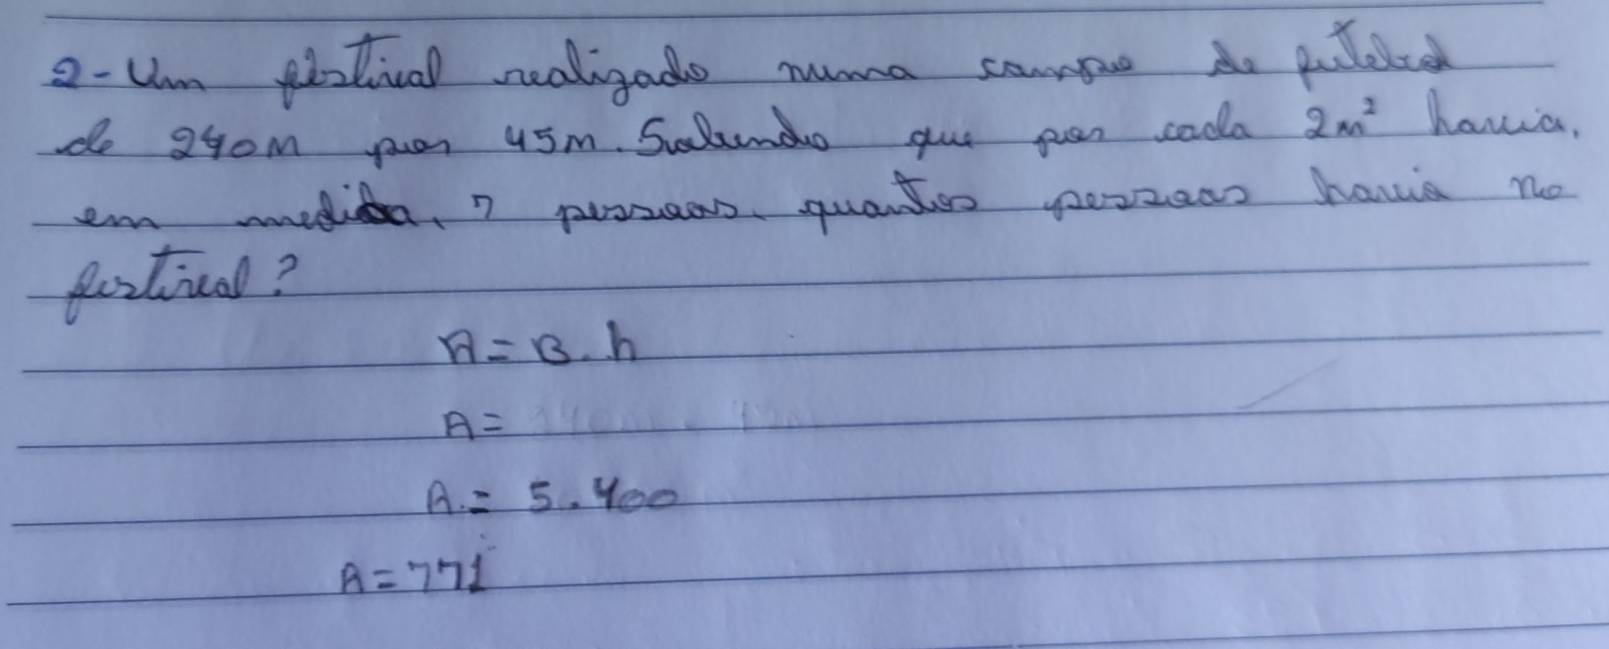 2- Um festival realizado numa campo de futebol
de 240m por 45m. Sabendo que por cada 2m² havia,
em media, 7 pessoas. quantas pessoas havia no
festival?
A = B. h
A =
A = 5.400
A = 771